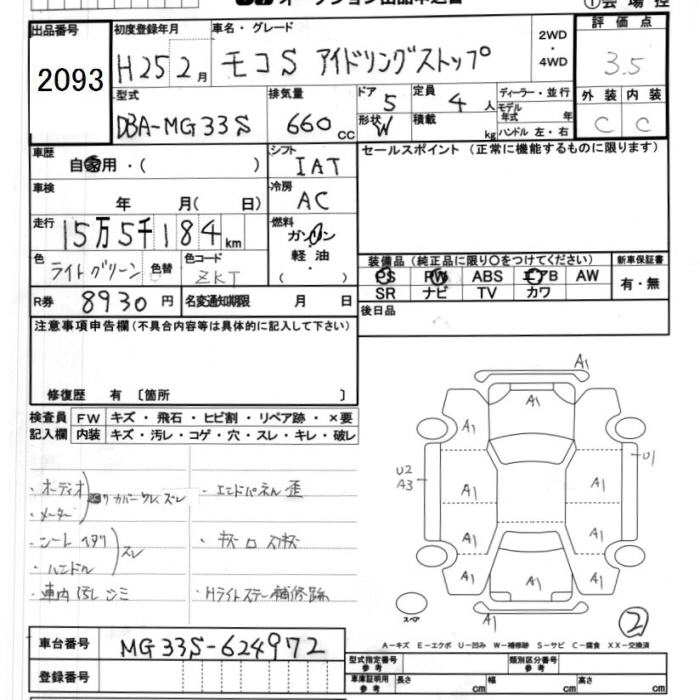 オークション出品申込書
①会場控
出品番号
2093
初度登録年月
H25 2月
車名・グレード
モコS アイドリングストップ
2WD
・
4WD
評価点
3.5
型式
DBA-MG33S
排気量
660 cc
ドア 5
定員 4 人
形状 W
積載 kg
ディーラー・並行
モデル年式 年
ハンドル 左・右
外装 内装
C C
車歴
自家用・( )
シフト
IAT
セールスポイント(正常に機能するものに限ります)
車検
年 月( 日)
冷房
AC
走行
15万5千184km
燃料
ガソリン
軽油
( )
色
ライトグリーン
色替
色コード
ZKT
装備品(純正品に限り○をつけてください)
新車保証書
PS PW ABS エアB AW
SR ナビ TV カワ
有・無
R券 8930円
名変通知期限 月 日
後日品
注意事項申告欄(不具合内容等は具体的に記入して下さい)
修復歴 有 〔箇所 〕
検査員記入欄
FW キズ・飛石・ヒビ割・リペア跡・×要
内装 キズ・汚レ・コゲ・穴・スレ・キレ・破レ
・オーディオ
・メーター
カバー クレ スレ
・エンドパネル歪
・シート ヘタリ
・ハンドル
スレ
・車内 汚レ シミ
・Hライトステー補修跡
A1
A1
A1
U2
A3
U1
A1
A1
A1
A1
A1
A1
A1
A1
スペア
②
A-キズ E-エクボ U-凹み W-補修跡 S-サビ C-腐食 XX-交換済
車台番号
MG33S-624972
登録番号
型式指定番号 参考
類別区分番号 参考
車庫証明用 参考
長さ cm
幅 cm
高さ cm